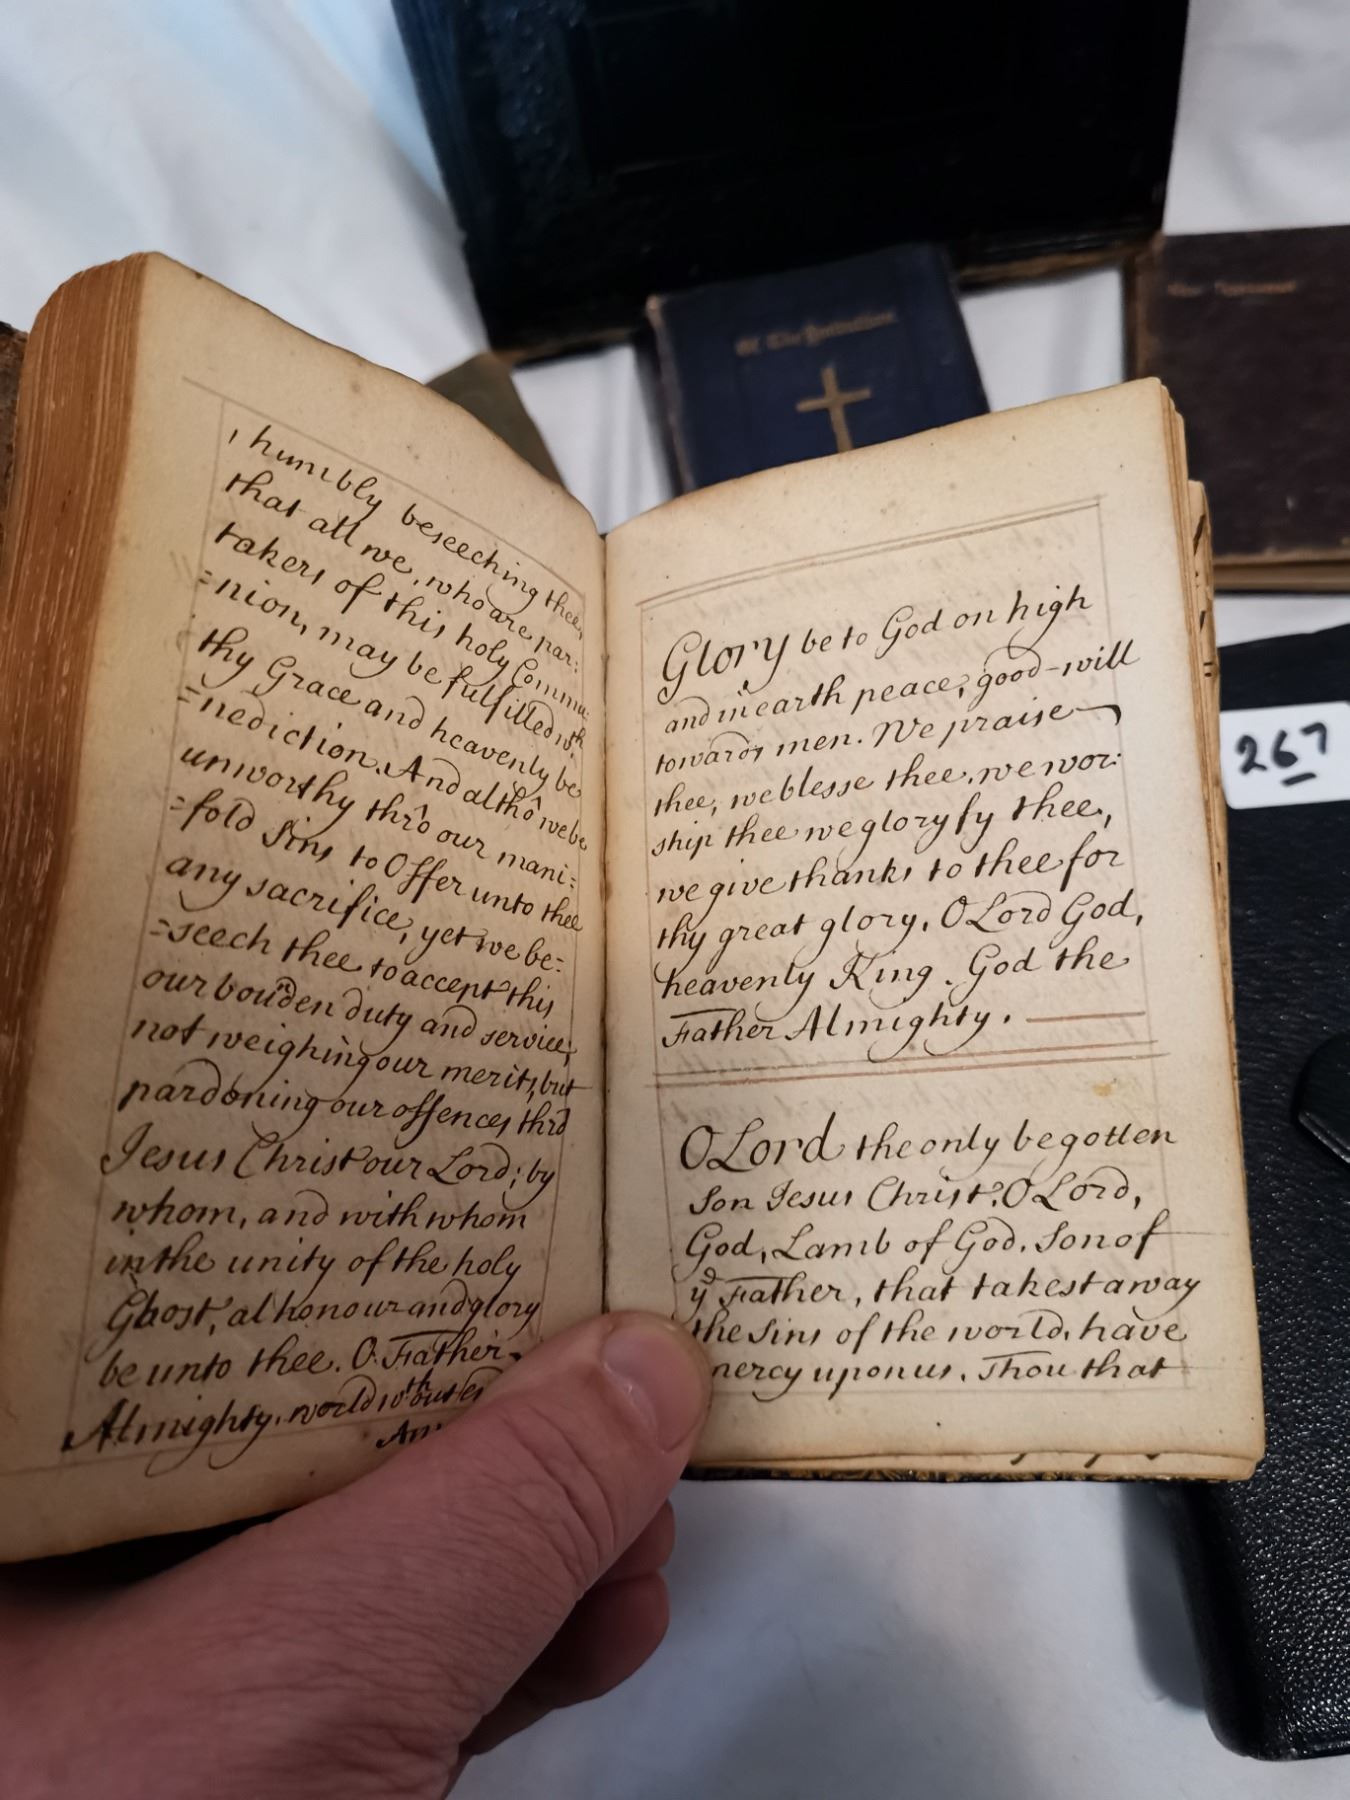 , humbly beseeching thee,
that all we, who are par:
takers of this holy Commu:
=nion, may be fulfilled wth
thy Grace and heavenly be
=nediction. And altho we be
unworthy thro our mani:
=fold Sins to Offer unto thee
any sacrifice, yet we be:
=seech thee to accept this
our bounden duty and service;
not weighing our merits, but
pardoning our offences thro
Jesus Christ our Lord; by
whom, and with whom
in the unity of the holy
Ghost, al honour and glory
be unto thee. O Father
Almighty, world wthout
Glory be to God on high
and in earth peace, good-will
towards men. We praise
thee, we blesse thee, we wor:
ship thee we gloryfy thee,
we give thanks to thee for
thy great glory, O Lord God,
heavenly King. God the
Father Almighty.
O Lord the only begotten
Son Jesus Christ, O Lord,
God, Lamb of God, Son of
ye Father, that takest away
the Sins of the world, have
mercy upon us. Thou that
Of The Institutions
New Testament
267